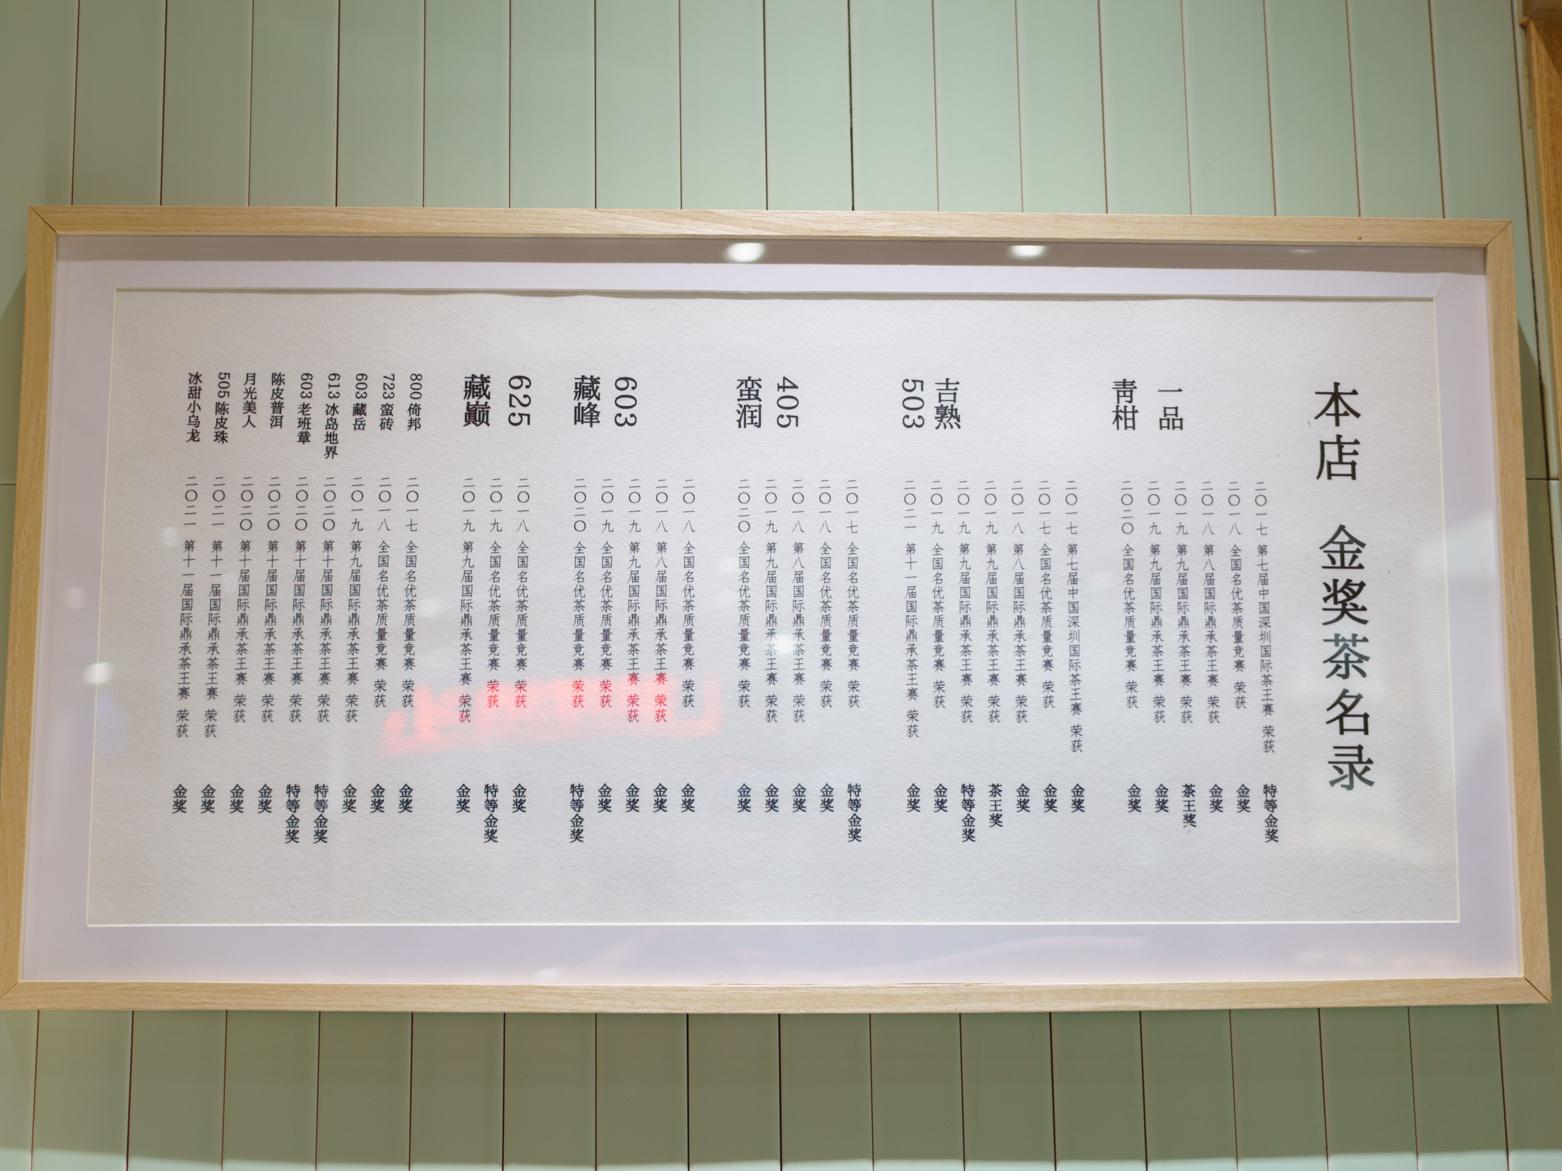 本店 金奖茶名录
一品
青柑
二〇一七 第七届中国深圳国际茶王赛 荣获 特等金奖
二〇一八 全国名优茶质量竞赛 荣获 金奖
二〇一八 第八届国际鼎承茶王赛 荣获 金奖
二〇一九 第九届国际鼎承茶王赛 荣获 茶王奖
二〇一九 第九届国际鼎承茶王赛 荣获 金奖
二〇二〇 全国名优茶质量竞赛 荣获 金奖
吉熟
503
二〇一七 第七届中国深圳国际茶王赛 荣获 金奖
二〇一七 全国名优茶质量竞赛 荣获 金奖
二〇一八 第八届国际鼎承茶王赛 荣获 金奖
二〇一九 第九届国际鼎承茶王赛 荣获 茶王奖
二〇一九 第九届国际鼎承茶王赛 荣获 特等金奖
二〇一九 全国名优茶质量竞赛 荣获 金奖
二〇二一 第十一届国际鼎承茶王赛 荣获 金奖
405
蛮润
二〇一七 全国名优茶质量竞赛 荣获 特等金奖
二〇一八 全国名优茶质量竞赛 荣获 金奖
二〇一八 第八届国际鼎承茶王赛 荣获 金奖
二〇一九 第九届国际鼎承茶王赛 荣获 金奖
二〇二〇 全国名优茶质量竞赛 荣获 金奖
603
藏峰
二〇一八 全国名优茶质量竞赛 荣获 金奖
二〇一八 第八届国际鼎承茶王赛 荣获 金奖
二〇一九 第九届国际鼎承茶王赛 荣获 金奖
二〇一九 全国名优茶质量竞赛 荣获 金奖
二〇二〇 全国名优茶质量竞赛 荣获 特等金奖
625
藏巅
二〇一八 全国名优茶质量竞赛 荣获 金奖
二〇一九 全国名优茶质量竞赛 荣获 特等金奖
二〇一九 第九届国际鼎承茶王赛 荣获 金奖
800 倚邦 二〇一七 全国名优茶质量竞赛 荣获 金奖
723 蛮砖 二〇一八 全国名优茶质量竞赛 荣获 金奖
603 藏岳 二〇一九 第九届国际鼎承茶王赛 荣获 金奖
613 冰岛地界 二〇二〇 第十届国际鼎承茶王赛 荣获 特等金奖
603 老班章 二〇二〇 第十届国际鼎承茶王赛 荣获 特等金奖
陈皮普洱 二〇二〇 第十届国际鼎承茶王赛 荣获 金奖
月光美人 二〇二〇 第十届国际鼎承茶王赛 荣获 金奖
505 陈皮珠 二〇二一 第十一届国际鼎承茶王赛 荣获 金奖
冰甜小乌龙 二〇二一 第十一届国际鼎承茶王赛 荣获 金奖